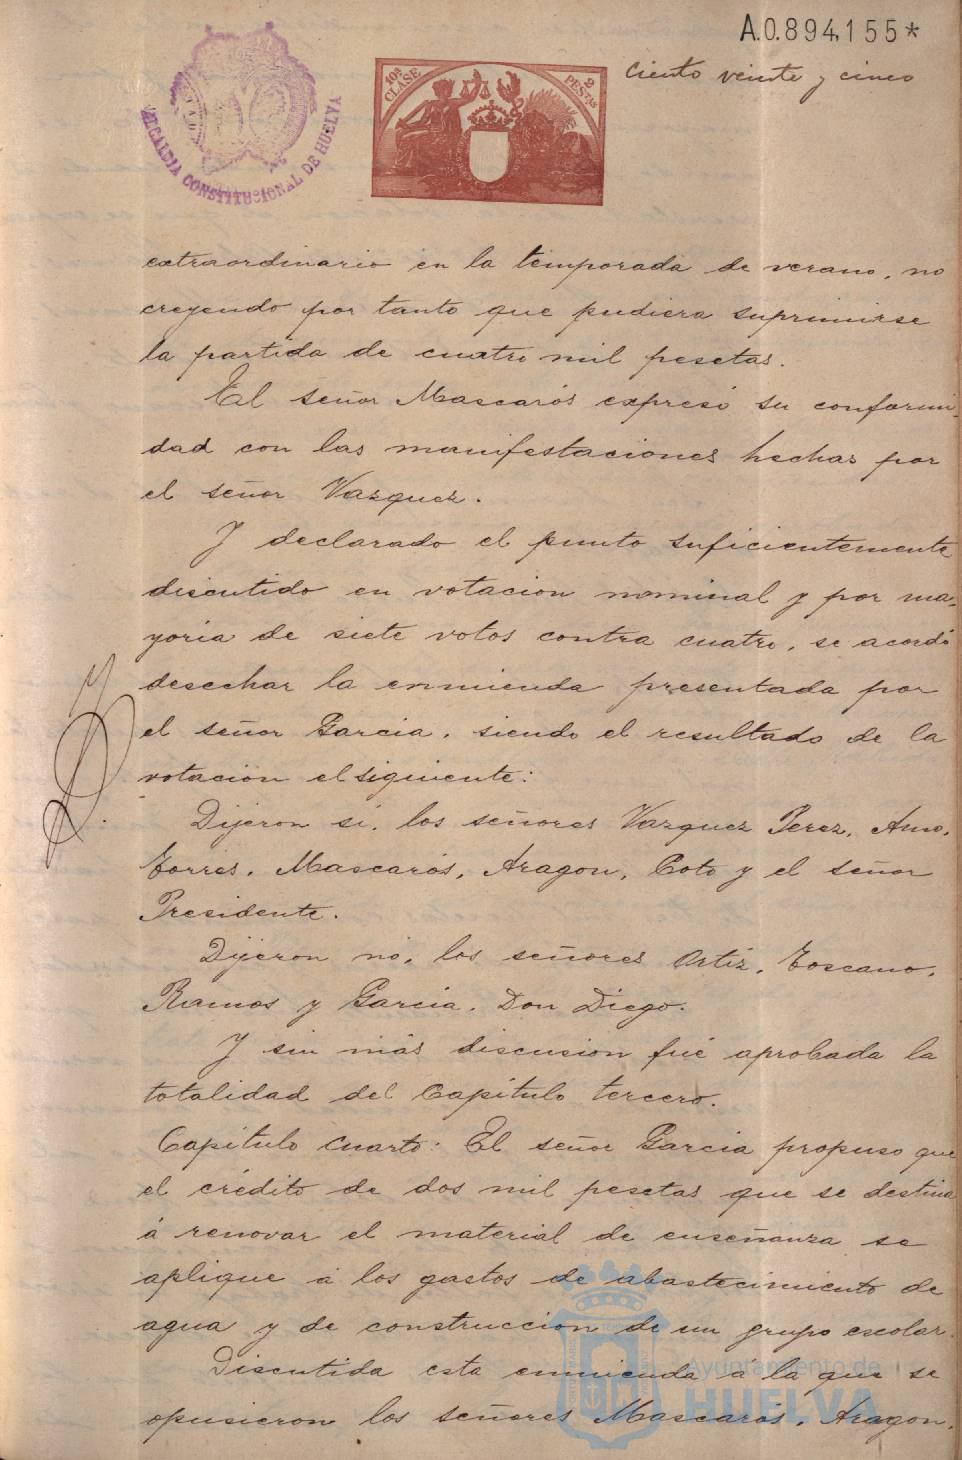 A.0.894,155*
ALCALDIA CONSTITUCIONAL DE HUELVA
10ª CLASE
2 PESTAS
Ciento veinte y cinco
extraordinario en la temporada de verano, no
creyendo por tanto que pudiera suprimirse
la partida de cuatro mil pesetas.
El señor Mascarós expresó su conformi-
dad con las manifestaciones hechas por
el señor Vazquez.
Y declarado el punto suficientemente
discutido en votacion nominal y por ma-
yoria de siete votos contra cuatro, se acordó
desechar la enmienda presentada por
el señor Garcia, siendo el resultado de la
votacion el siguiente:
Dijeron si, los señores Vazquez Perez, Amo,
Torres, Mascarós, Aragon, Coto y el señor
Presidente.
Dijeron no, los señores Ortiz, Toscano,
Ramos y Garcia, Don Diego.
Y sin más discusion fué aprobada la
totalidad del Capítulo tercero.
Capítulo cuarto: El señor Garcia propuso que
el crédito de dos mil pesetas que se destina
á renovar el material de enseñanza se
aplique á los gastos de abastecimiento de
agua y de construccion de un grupo escolar.
Discutida esta enmienda á la que se
opusieron los señores Mascarós, Aragon,
Ayuntamiento de
HUELVA